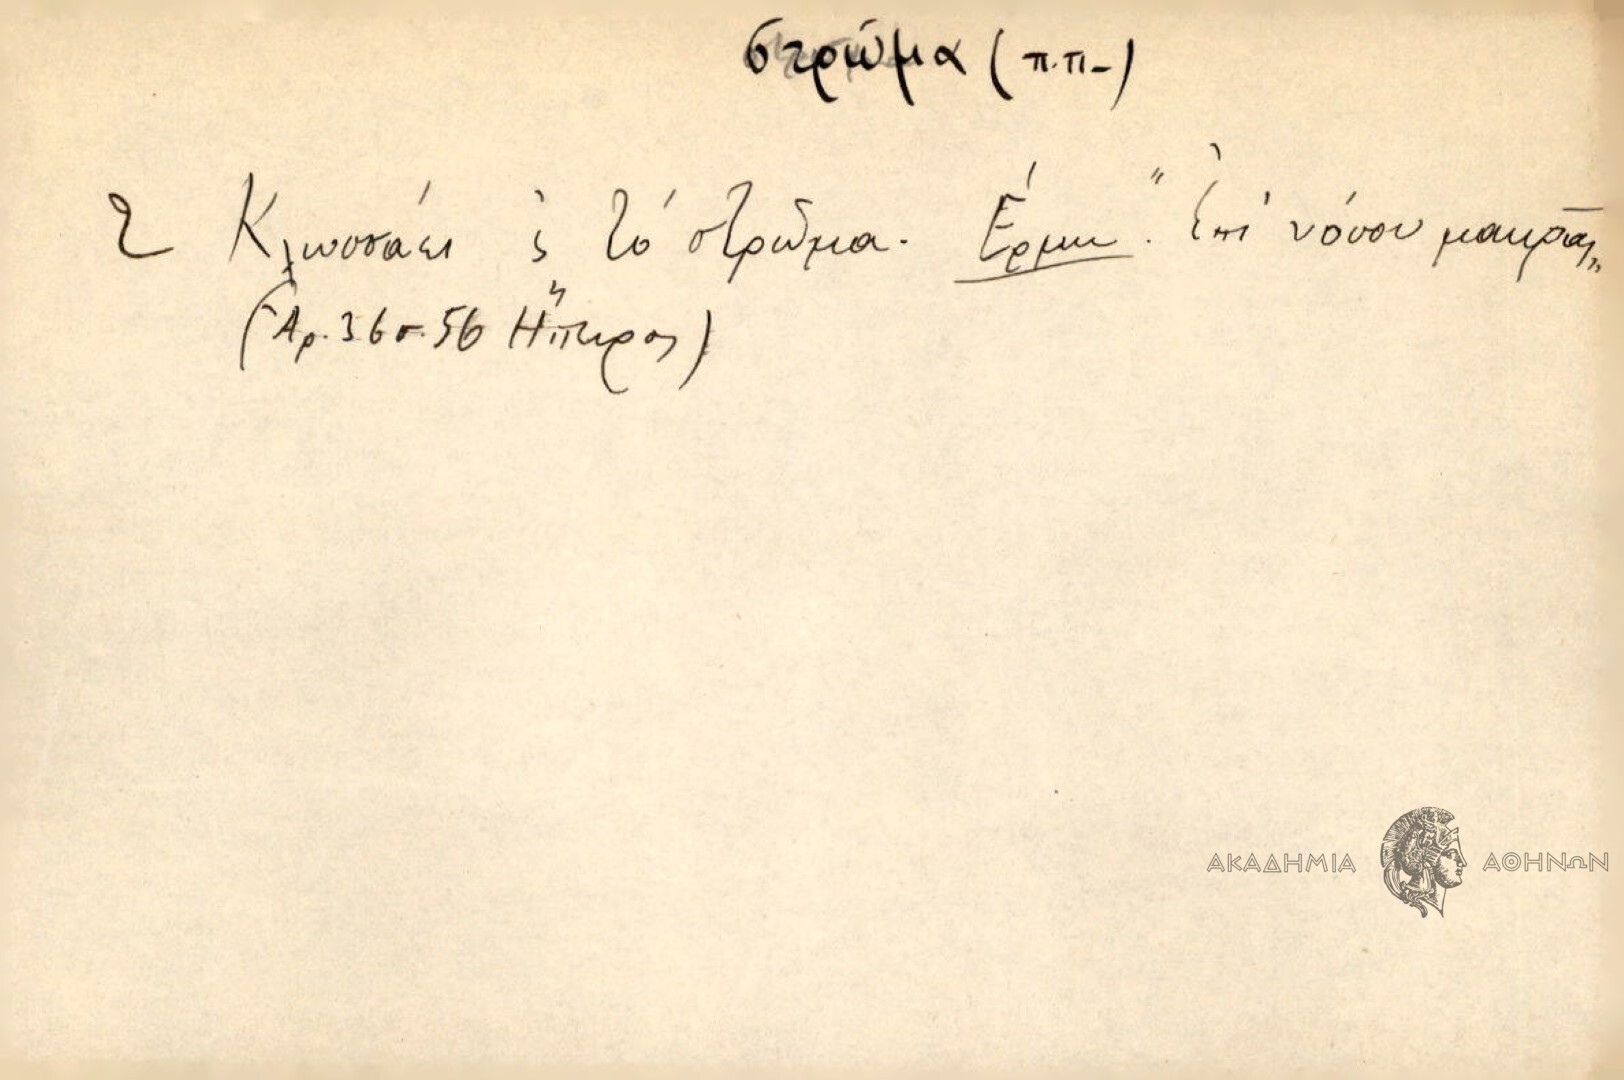 στρῶμα (π.π-)
2 Κλωσσάει ἐ τό στρῶμα. Ἑρμ. "Ἐπὶ νόσου μακρᾶς"
(Ἀρ. 36 σ. 56 Ἤπειρος)
ΑΚΑΔΗΜΙΑ ΑΘΗΝΩΝ